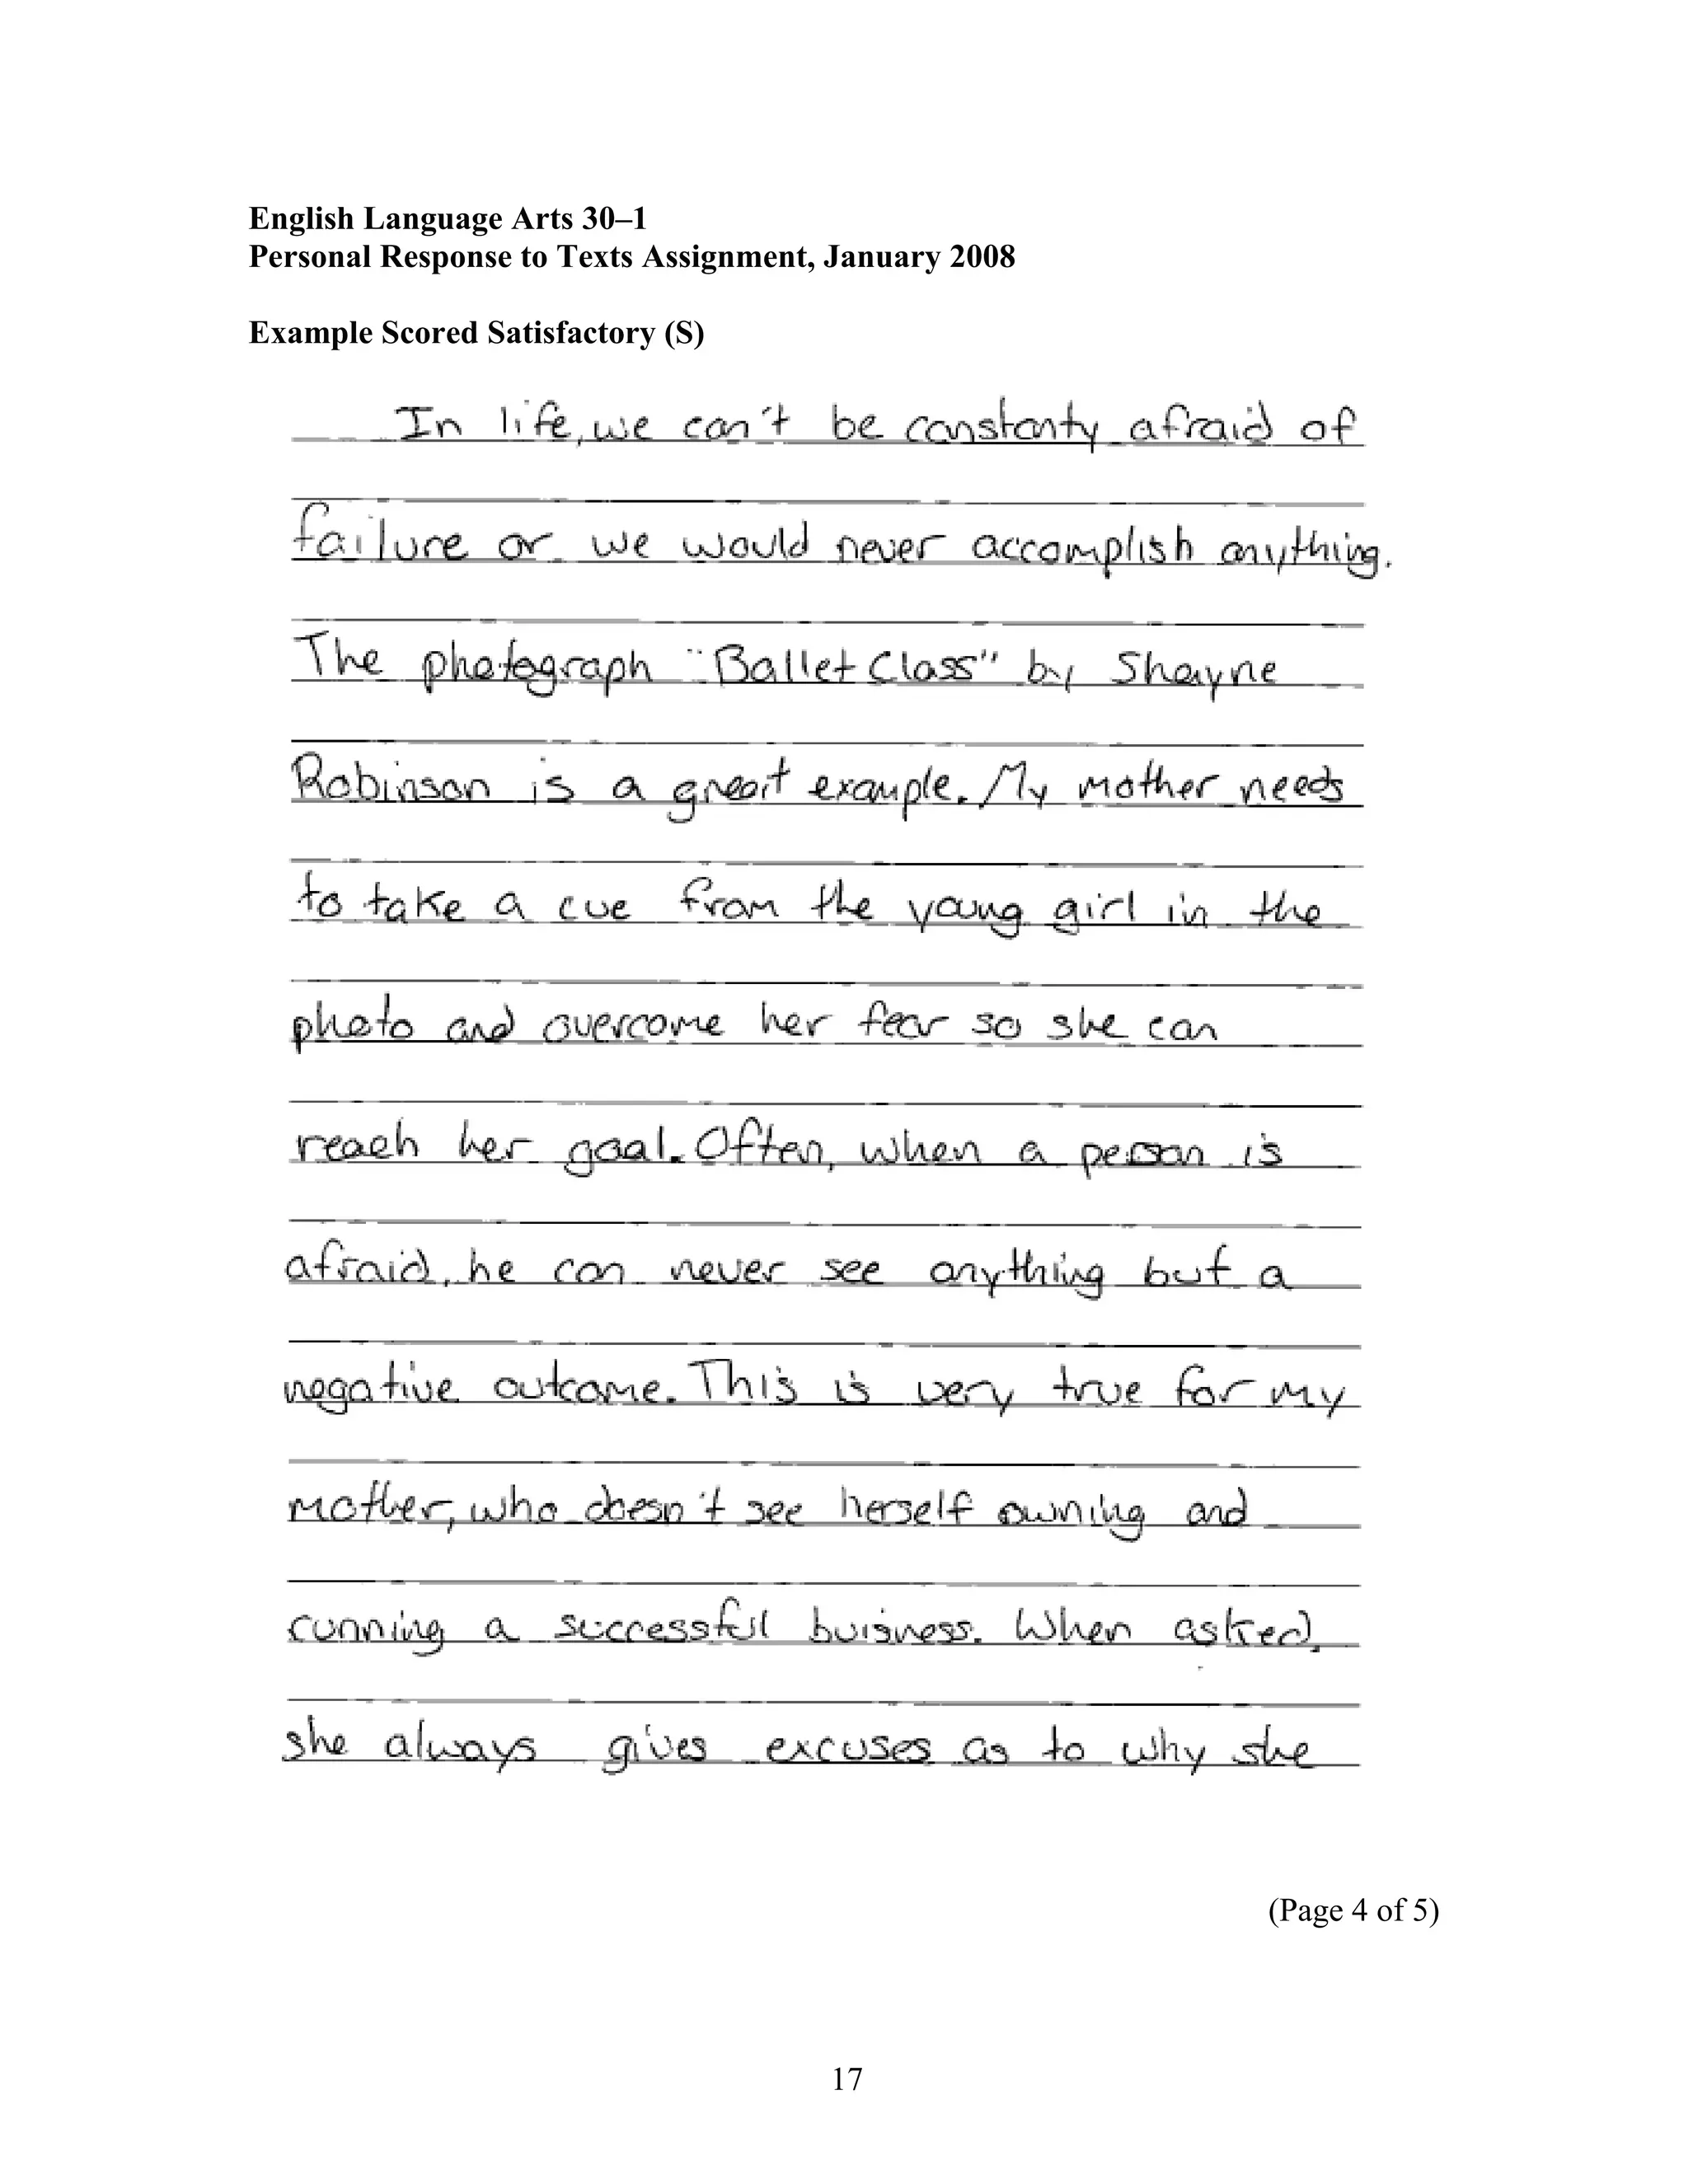 English Language Arts 30–1
Personal Response to Texts Assignment, January 2008
Example Scored Satisfactory (S)
In life, we can't be constanty afraid of
failure or we would never accomplish anything.
The photograph "Ballet Class" by Shayne
Robinson is a great example. My mother needs
to take a cue from the young girl in the
photo and overcome her fear so she can
reach her goal. Often, when a person is
afraid, he can never see anything but a
negative outcome. This is very true for my
mother, who doesn't see herself owning and
running a successful buisness. When asked,
she always gives excuses as to why she
(Page 4 of 5)
17